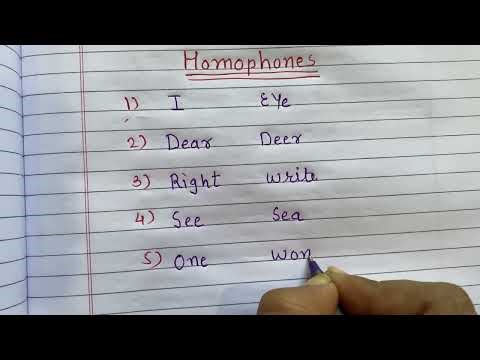 Homophones
1) I Eye
2) Dear Deer
3) Right Write
4) See Sea
5) One Won